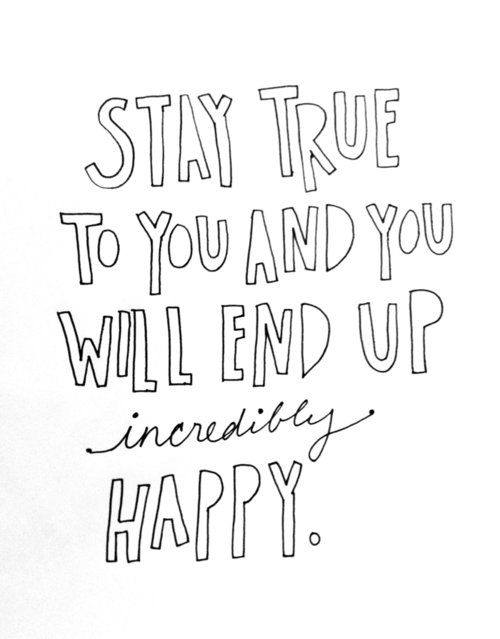 STAY TRUE
TO YOU AND YOU
WILL END UP
incredibly
HAPPY.